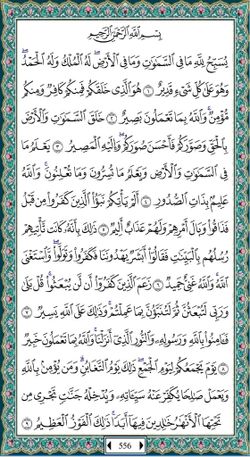 بِسْمِ اللَّهِ الرَّحْمَٰنِ الرَّحِيمِ
يُسَبِّحُ لِلَّهِ مَا فِي السَّمَاوَاتِ وَمَا فِي الْأَرْضِ ۖ لَهُ الْمُلْكُ وَلَهُ الْحَمْدُ ۖ
وَهُوَ عَلَىٰ كُلِّ شَيْءٍ قَدِيرٌ ١ هُوَ الَّذِي خَلَقَكُمْ فَمِنكُمْ كَافِرٌ وَمِنكُم
مُّؤْمِنٌ ۚ وَاللَّهُ بِمَا تَعْمَلُونَ بَصِيرٌ ٢ خَلَقَ السَّمَاوَاتِ وَالْأَرْضَ
بِالْحَقِّ وَصَوَّرَكُمْ فَأَحْسَنَ صُوَرَكُمْ ۖ وَإِلَيْهِ الْمَصِيرُ ٣ يَعْلَمُ مَا
فِي السَّمَاوَاتِ وَالْأَرْضِ وَيَعْلَمُ مَا تُسِرُّونَ وَمَا تُعْلِنُونَ ۚ وَاللَّهُ
عَلِيمٌ بِذَاتِ الصُّدُورِ ٤ أَلَمْ يَأْتِكُمْ نَبَأُ الَّذِينَ كَفَرُوا مِن قَبْلُ
فَذَاقُوا وَبَالَ أَمْرِهِمْ وَلَهُمْ عَذَابٌ أَلِيمٌ ٥ ذَٰلِكَ بِأَنَّهُ كَانَت تَّأْتِيهِمْ
رُسُلُهُم بِالْبَيِّنَاتِ فَقَالُوا أَبَشَرٌ يَهْدُونَنَا فَكَفَرُوا وَتَوَلَّوا ۚ وَّاسْتَغْنَى
اللَّهُ ۚ وَاللَّهُ غَنِيٌّ حَمِيدٌ ٦ زَعَمَ الَّذِينَ كَفَرُوا أَن لَّن يُبْعَثُوا ۚ قُلْ بَلَىٰ
وَرَبِّي لَتُبْعَثُنَّ ثُمَّ لَتُنَبَّؤُنَّ بِمَا عَمِلْتُمْ ۚ وَذَٰلِكَ عَلَى اللَّهِ يَسِيرٌ ٧
فَآمِنُوا بِاللَّهِ وَرَسُولِهِ وَالنُّورِ الَّذِي أَنزَلْنَا ۚ وَاللَّهُ بِمَا تَعْمَلُونَ خَبِيرٌ
٨ يَوْمَ يَجْمَعُكُمْ لِيَوْمِ الْجَمْعِ ۖ ذَٰلِكَ يَوْمُ التَّغَابُنِ ۗ وَمَن يُؤْمِن بِاللَّهِ
وَيَعْمَلْ صَالِحًا يُكَفِّرْ عَنْهُ سَيِّئَاتِهِ وَيُدْخِلْهُ جَنَّاتٍ تَجْرِي مِن
تَحْتِهَا الْأَنْهَارُ خَالِدِينَ فِيهَا أَبَدًا ۚ ذَٰلِكَ الْفَوْزُ الْعَظِيمُ ٩
556